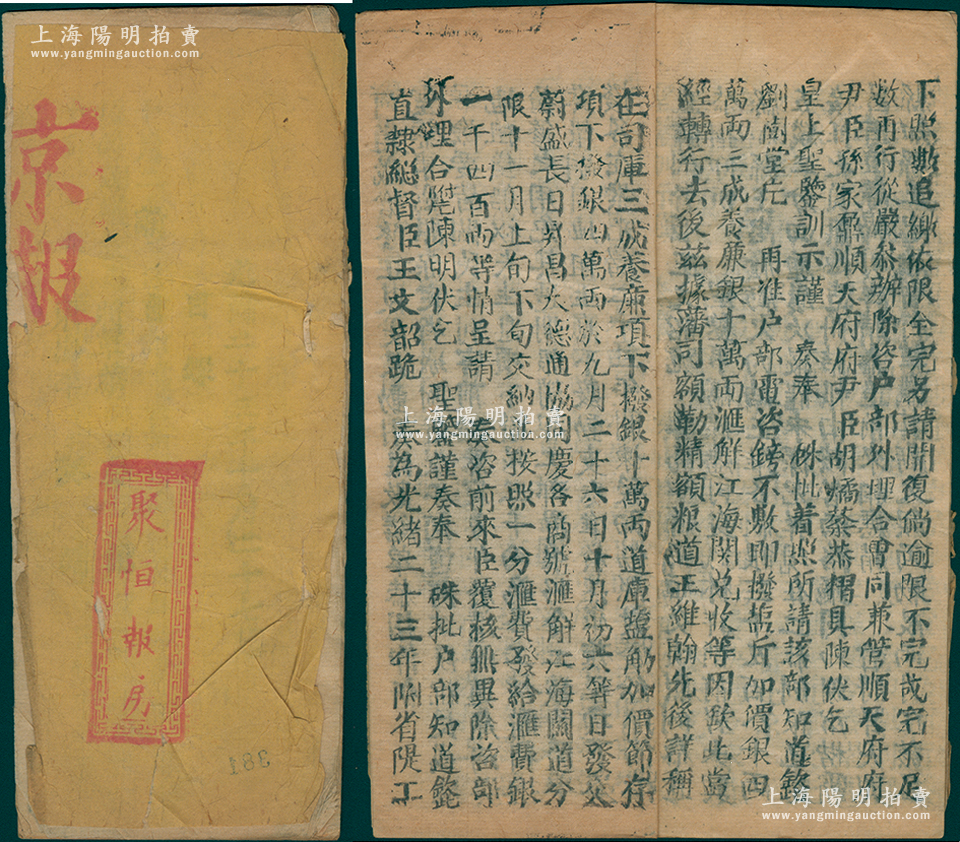 上海陽明拍賣
www.yangmingauction.com
京報
聚恒報房
381
上海陽明拍賣
www.yangmingauction.com
下照數追繳依限全完另請開復倘逾限不完或完不足
数再行從嚴叅辦除咨户部外理合會同兼管順天府府
尹臣孫家鼐順天府府尹臣胡燏棻恭摺具陳伏乞
皇上聖鑒訓示謹 奏奉 硃批着照所請該部知道欽
劉樹堂片 再准户部電咨鎊不敷即撥塩斤加價銀四
萬兩三成養廉銀十萬兩滙解江海関兑收等因欽此當
經轉行去後兹據藩司額勒精額粮道王維翰先後詳稱
在司庫三成養廉項下撥銀十萬兩道庫塩觔加價節存
項下撥銀四萬兩於九月二十六日十月初六等日發交
蔚盛長日昇昌大德通協同慶各商號滙解江海關道分
限十一月上旬下旬交納按照一分滙費發給滙費銀
一千四百兩等情呈請 奏咨前來臣覆核無異除咨部
外理合附陳明伏乞 聖鑒謹奏奉 硃批户部知道欽
直隸總督臣王文韶跪 奏為光緒二十三年附省隄工
上海陽明拍賣
www.yangmingauction.com
上海陽明拍賣
www.yangmingauction.com